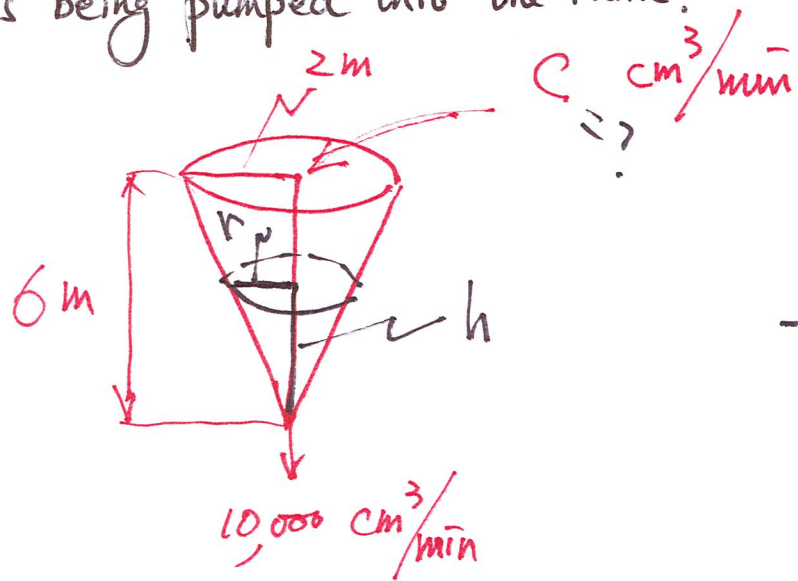 s being pumped into the tank.
2m
C cm³/min
= ?
r
6 m
h
10,000 cm³/min